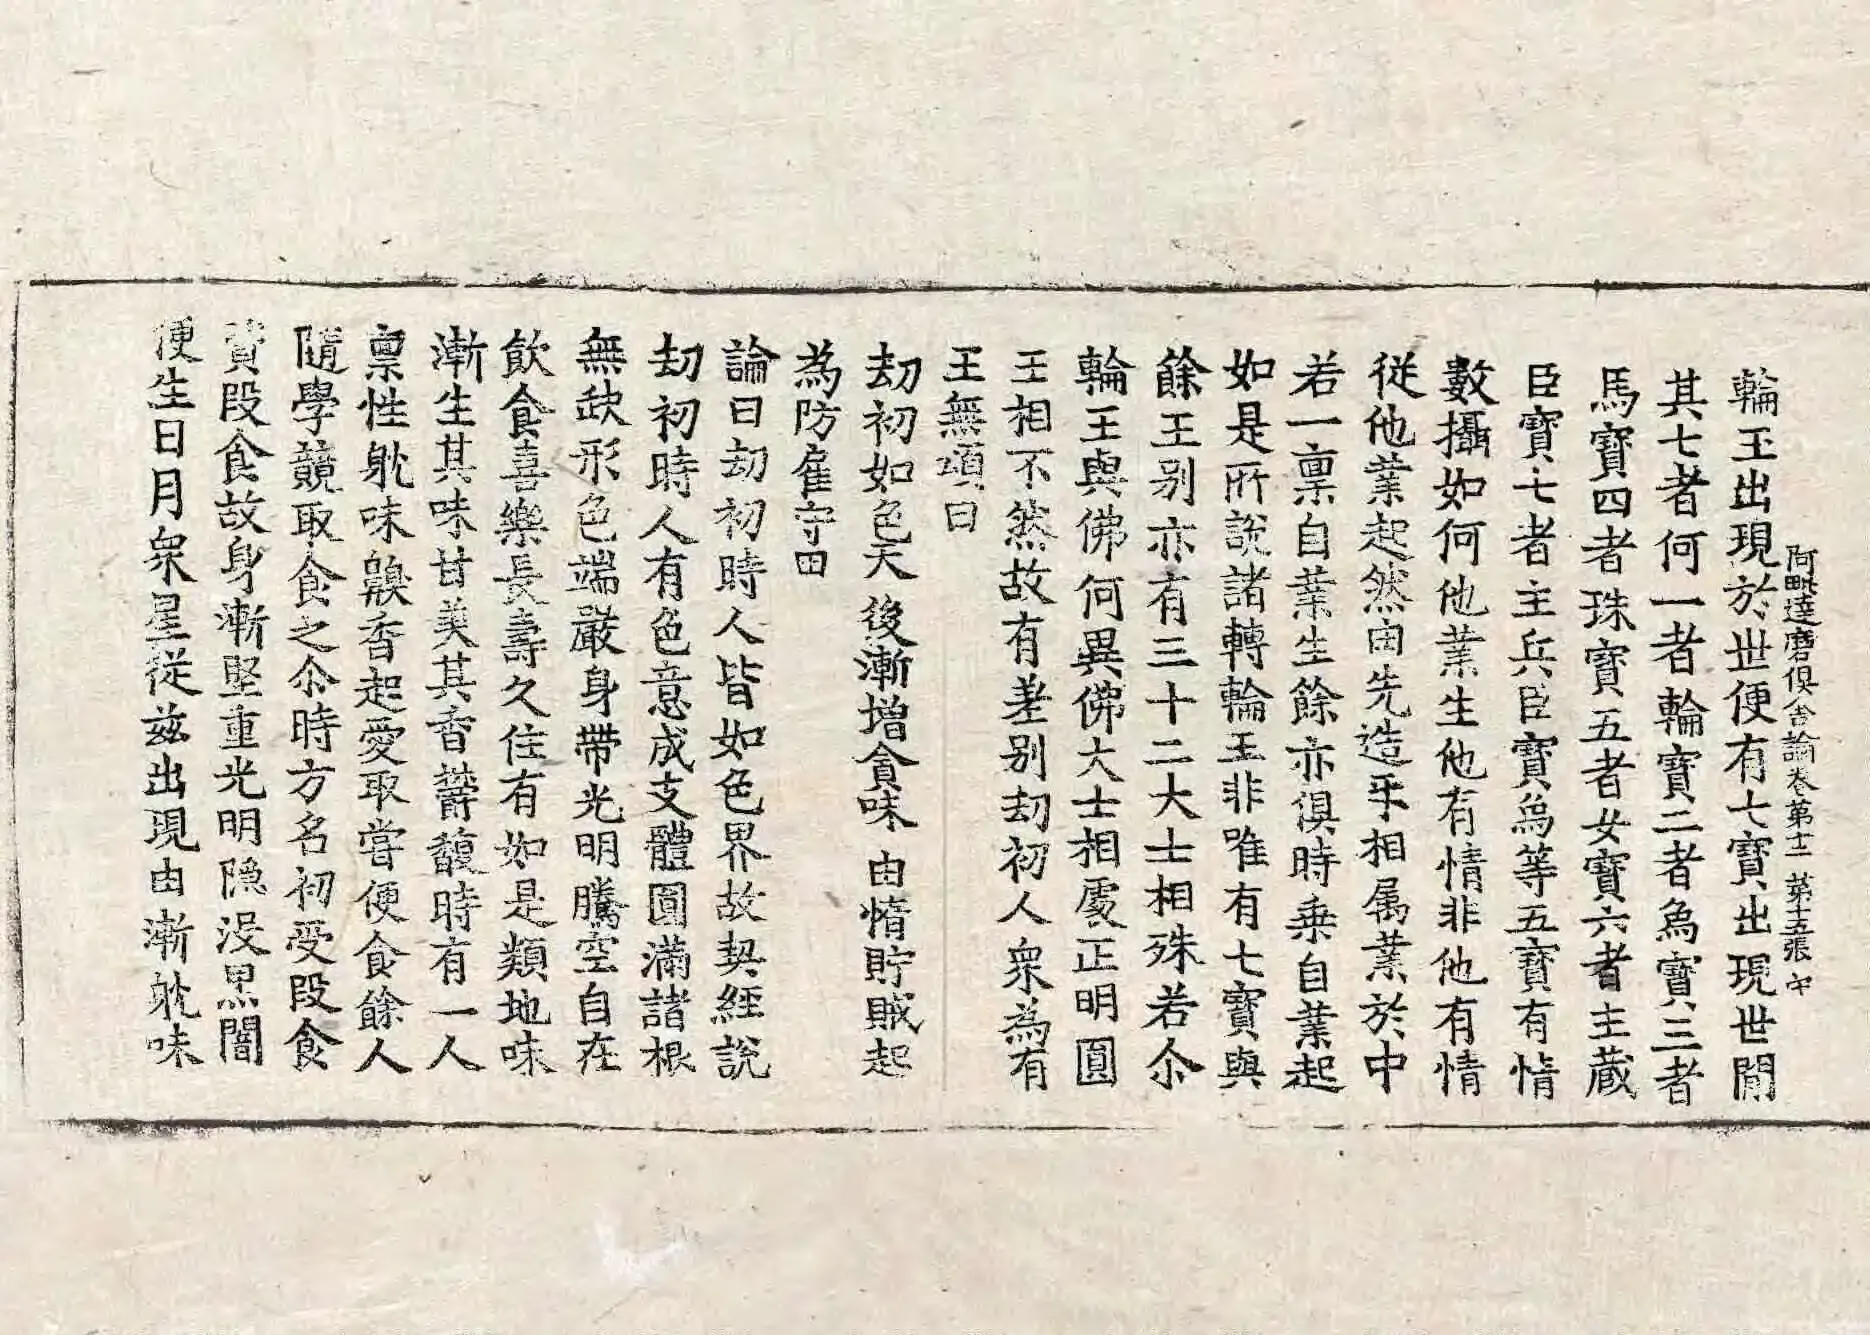 阿毗達磨俱舍論卷第十二 第十五張 守
輪王出現於世便有七寶出現世閒
其七者何一者輪寶二者烏寶三者
馬寶四者珠寶五者女寶六者主藏
臣寶七者主兵臣寶烏等五寶有情
數攝如何他業生他有情非他有情
從他業起然由先造乎相属業於中
若一稟自業生餘亦俱時乘自業起
如是所說諸轉輪王非唯有七寶與
餘王别亦有三十二大士相殊若尒
輪王與佛何異佛大士相處正明圓
王相不然故有差别劫初人衆為有
王無頌曰
劫初如色天 後漸增貪味 由惰貯賊起
為防雇守田
論曰劫初時人皆如色界故契經說
劫初時人有色意成支體圓滿諸根
無缺形色端嚴身帶光明騰空自在
飲食喜樂長壽久住有如是類地味
漸生其味甘美其香欝馥時有一人
稟性躭味齅香起愛取嘗便食餘人
隨學競取食之尒時方名初受段食
資段食故身漸堅重光明隱没黑闇
便生日月衆星從兹出現由漸躭味